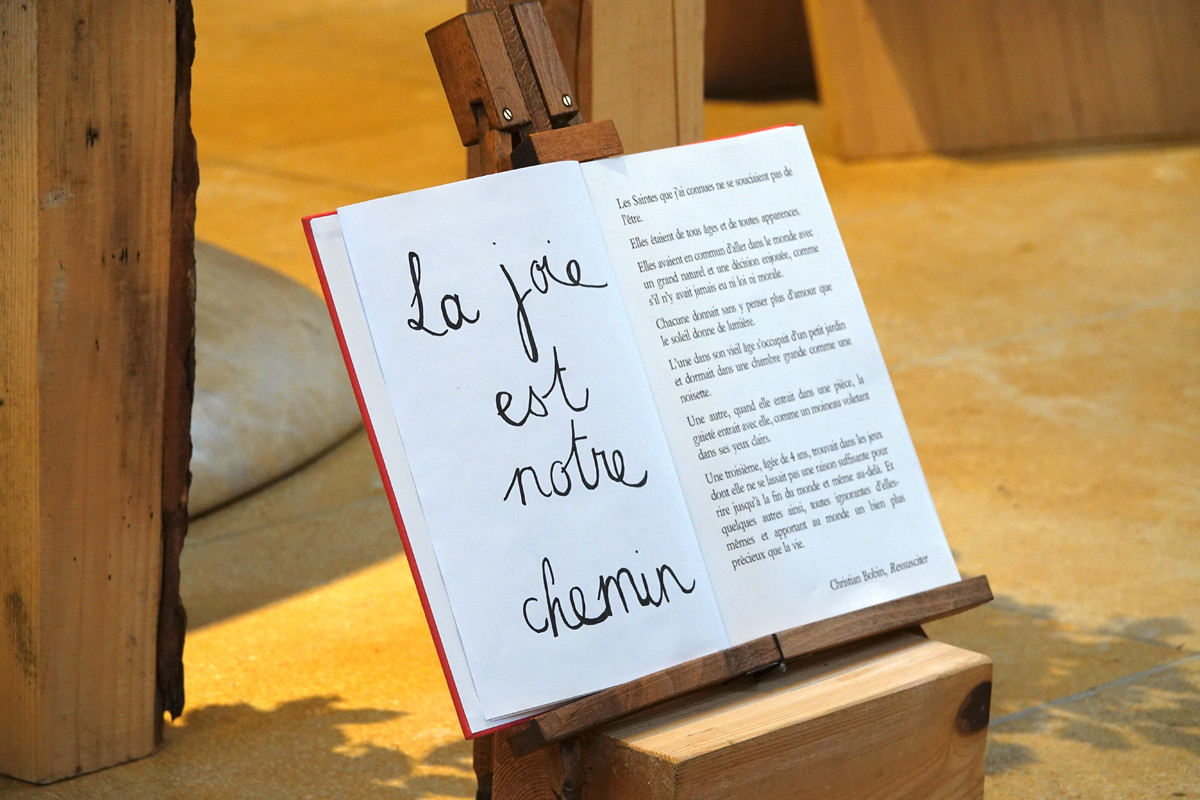 La joie
est
notre
chemin
Les Saintes que j'ai connues ne se souciaient pas de
l'être.
Elles étaient de tous âges et de toutes apparences.
Elles avaient en commun d'aller dans le monde avec
un grand naturel et une décision enjouée, comme
s'il n'y avait jamais eu ni loi ni morale.
Chacune donnait sans y penser plus d'amour que
le soleil donne de lumière.
L'une dans son vieil âge s'occupait d'un petit jardin
et dormait dans une chambre grande comme une
noisette.
Une autre, quand elle entrait dans une pièce, la
gaieté entrait avec elle, comme un moineau voletant
dans ses yeux clairs.
Une troisième, âgée de 4 ans, trouvait dans les jeux
dont elle ne se lassait pas une raison suffisante pour
rire jusqu'à la fin du monde et même au-delà. Et
quelques autres ainsi, toutes ignorantes d'elles-
mêmes et apportant au monde un bien plus
précieux que la vie.
Christian Bobin, Ressusciter